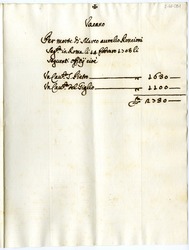 Vacano
Per morte di Marco Aurelio
seg.ta in Roma li 24 febraro 1708 li
seguenti offitij cioè
Un Cav.to S. Pietro 1680
Un Cav.to del Giglio 1100